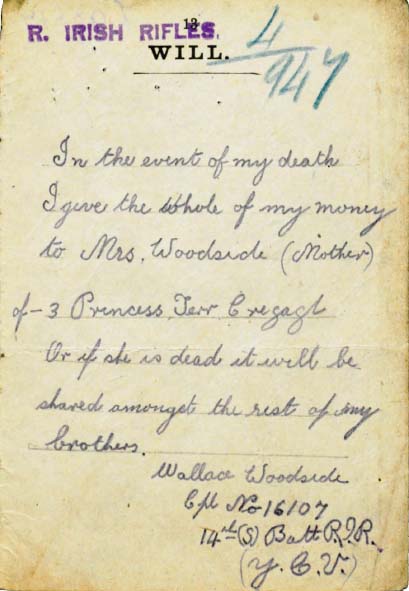 13
R. IRISH RIFLES.
4/947
WILL.
In the event of my death
I give the whole of my money
to Mrs. Woodside (Mother)
of - 3 Princess Terr Cregagh
Or if she is dead it will be
shared amongst the rest of my
brothers.
Wallace Woodside
Cpl No 16107
14th (S) Batt R.I.R.
(Y.C.V.)